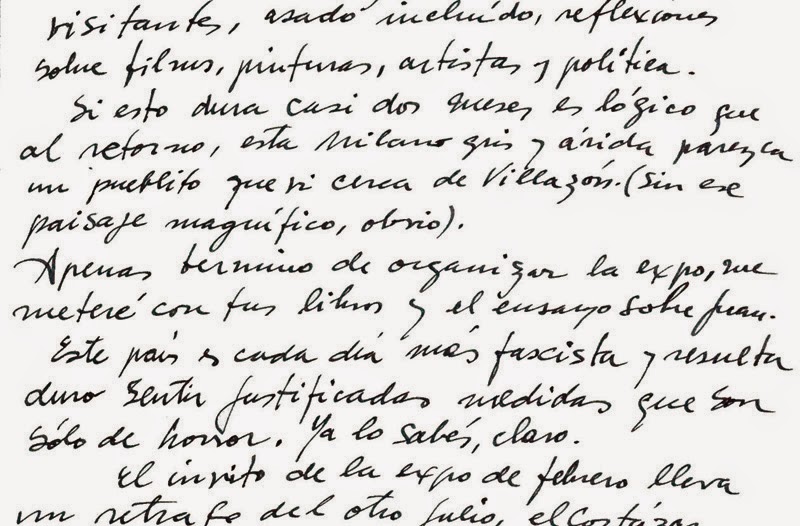 visitantes, asado incluído, reflexiones
sobre films, pinturas, artistas y política.
Si esto dura casi dos meses es lógico que
al retorno, esta Milano gris y árida parezca
un pueblito que vi cerca de Villazón. (Sin ese
paisaje magnífico, obvio).
Apenas termino de organizar la expo, me
meteré con tus libros y el ensayo sobre Juan.
Este país es cada día más fascista y resulta
duro sentir justificadas medidas que son
sólo de horror. Ya lo sabés, claro.
El invito de la expo de febrero lleva
un retrato del otro Julio, el Cortázar